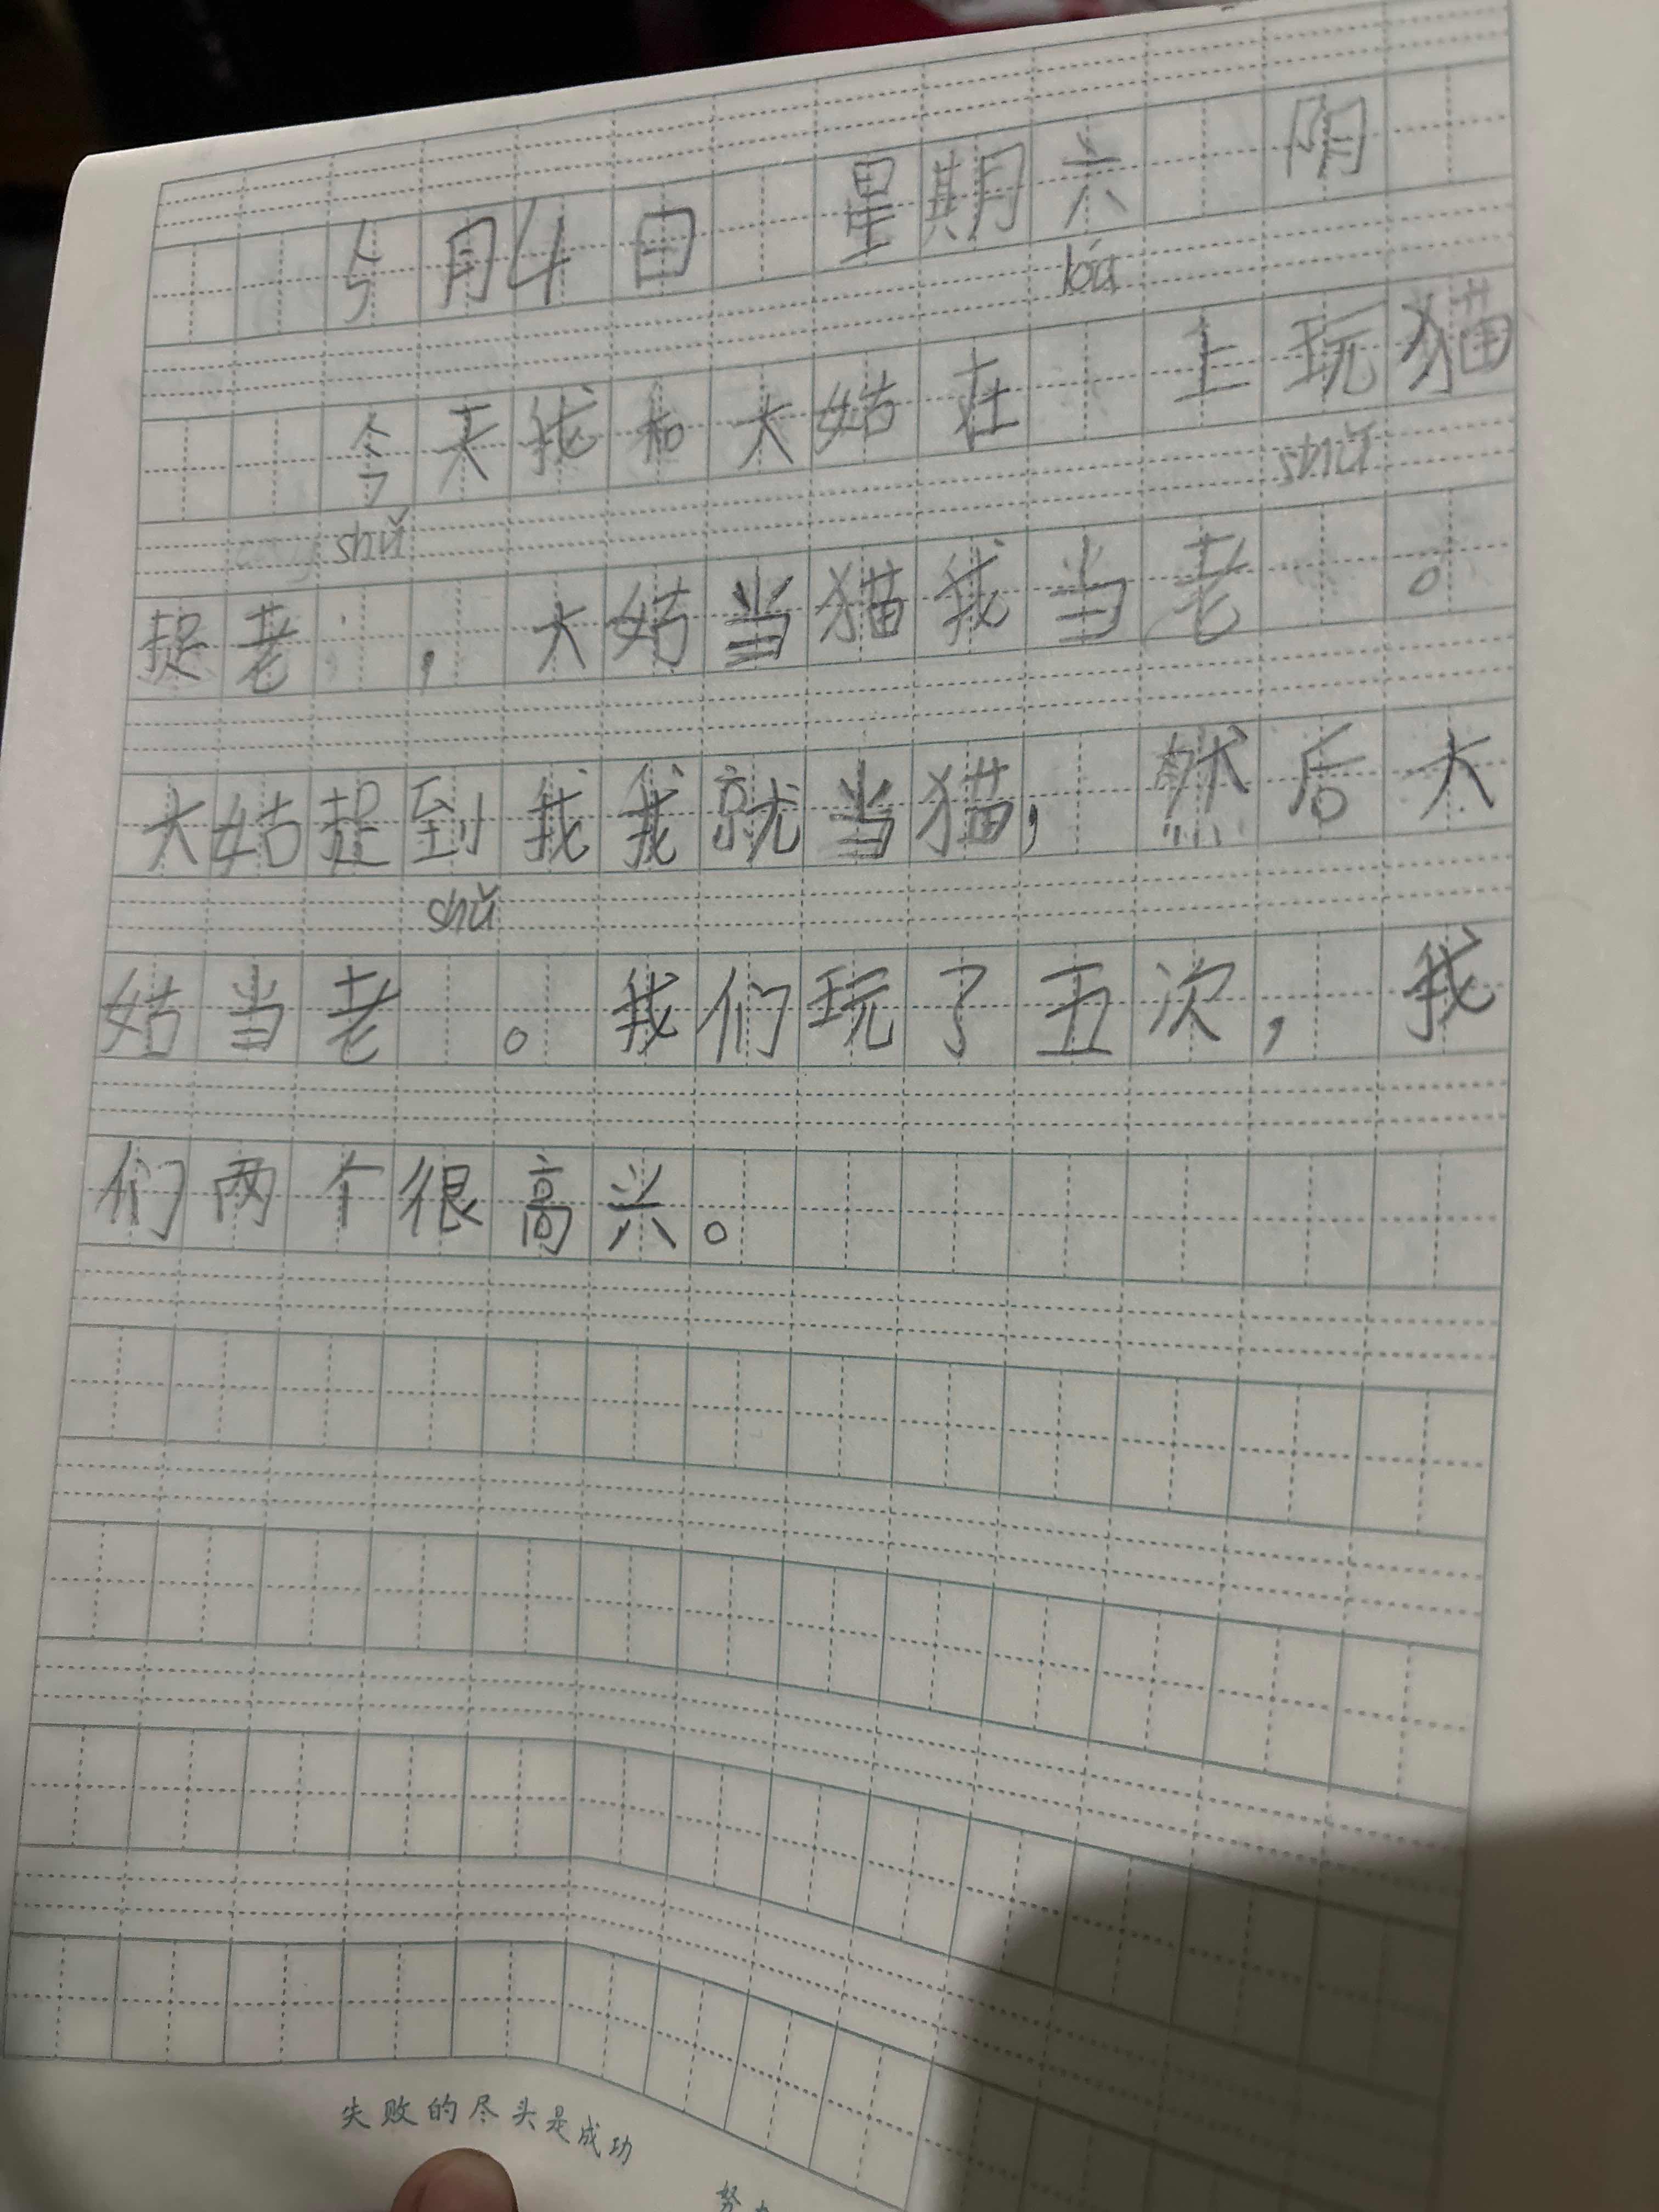 5月4日 星期六 阴
lóu
今天我和大姑在 上玩猫
shǔ shǔ
捉老 ，大姑当猫我当老 。
大姑捉到我我就当猫，然后大
shǔ
姑当老 。我们玩了五次，我
们两个很高兴。
失败的尽头是成功
努力